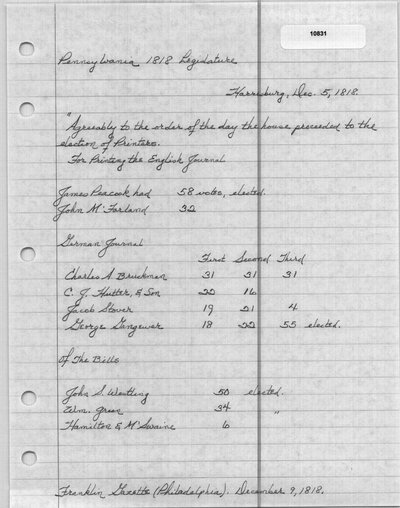 10831
Pennsylvania 1818 Legislature
Harrisburg, Dec. 5, 1818.
"Agreeably to the order of the day the house proceeded to the
election of Printers.
For Printing the English Journal
James Peacock had 58 votes, elected.
John M'Farland 32
German Journal
First Second Third
Charles A Bruckman 31 31 31
C. J. Hutter, & Son 22 16
Jacob Stover 19 21 4
George Gangewer 18 22 55 elected.
Of The Bills
John S. Weistling 50 elected.
Wm. Greer 34 "
Hamilton & M'Swaine 6
Franklin Gazette (Philadelphia). December 9, 1818.